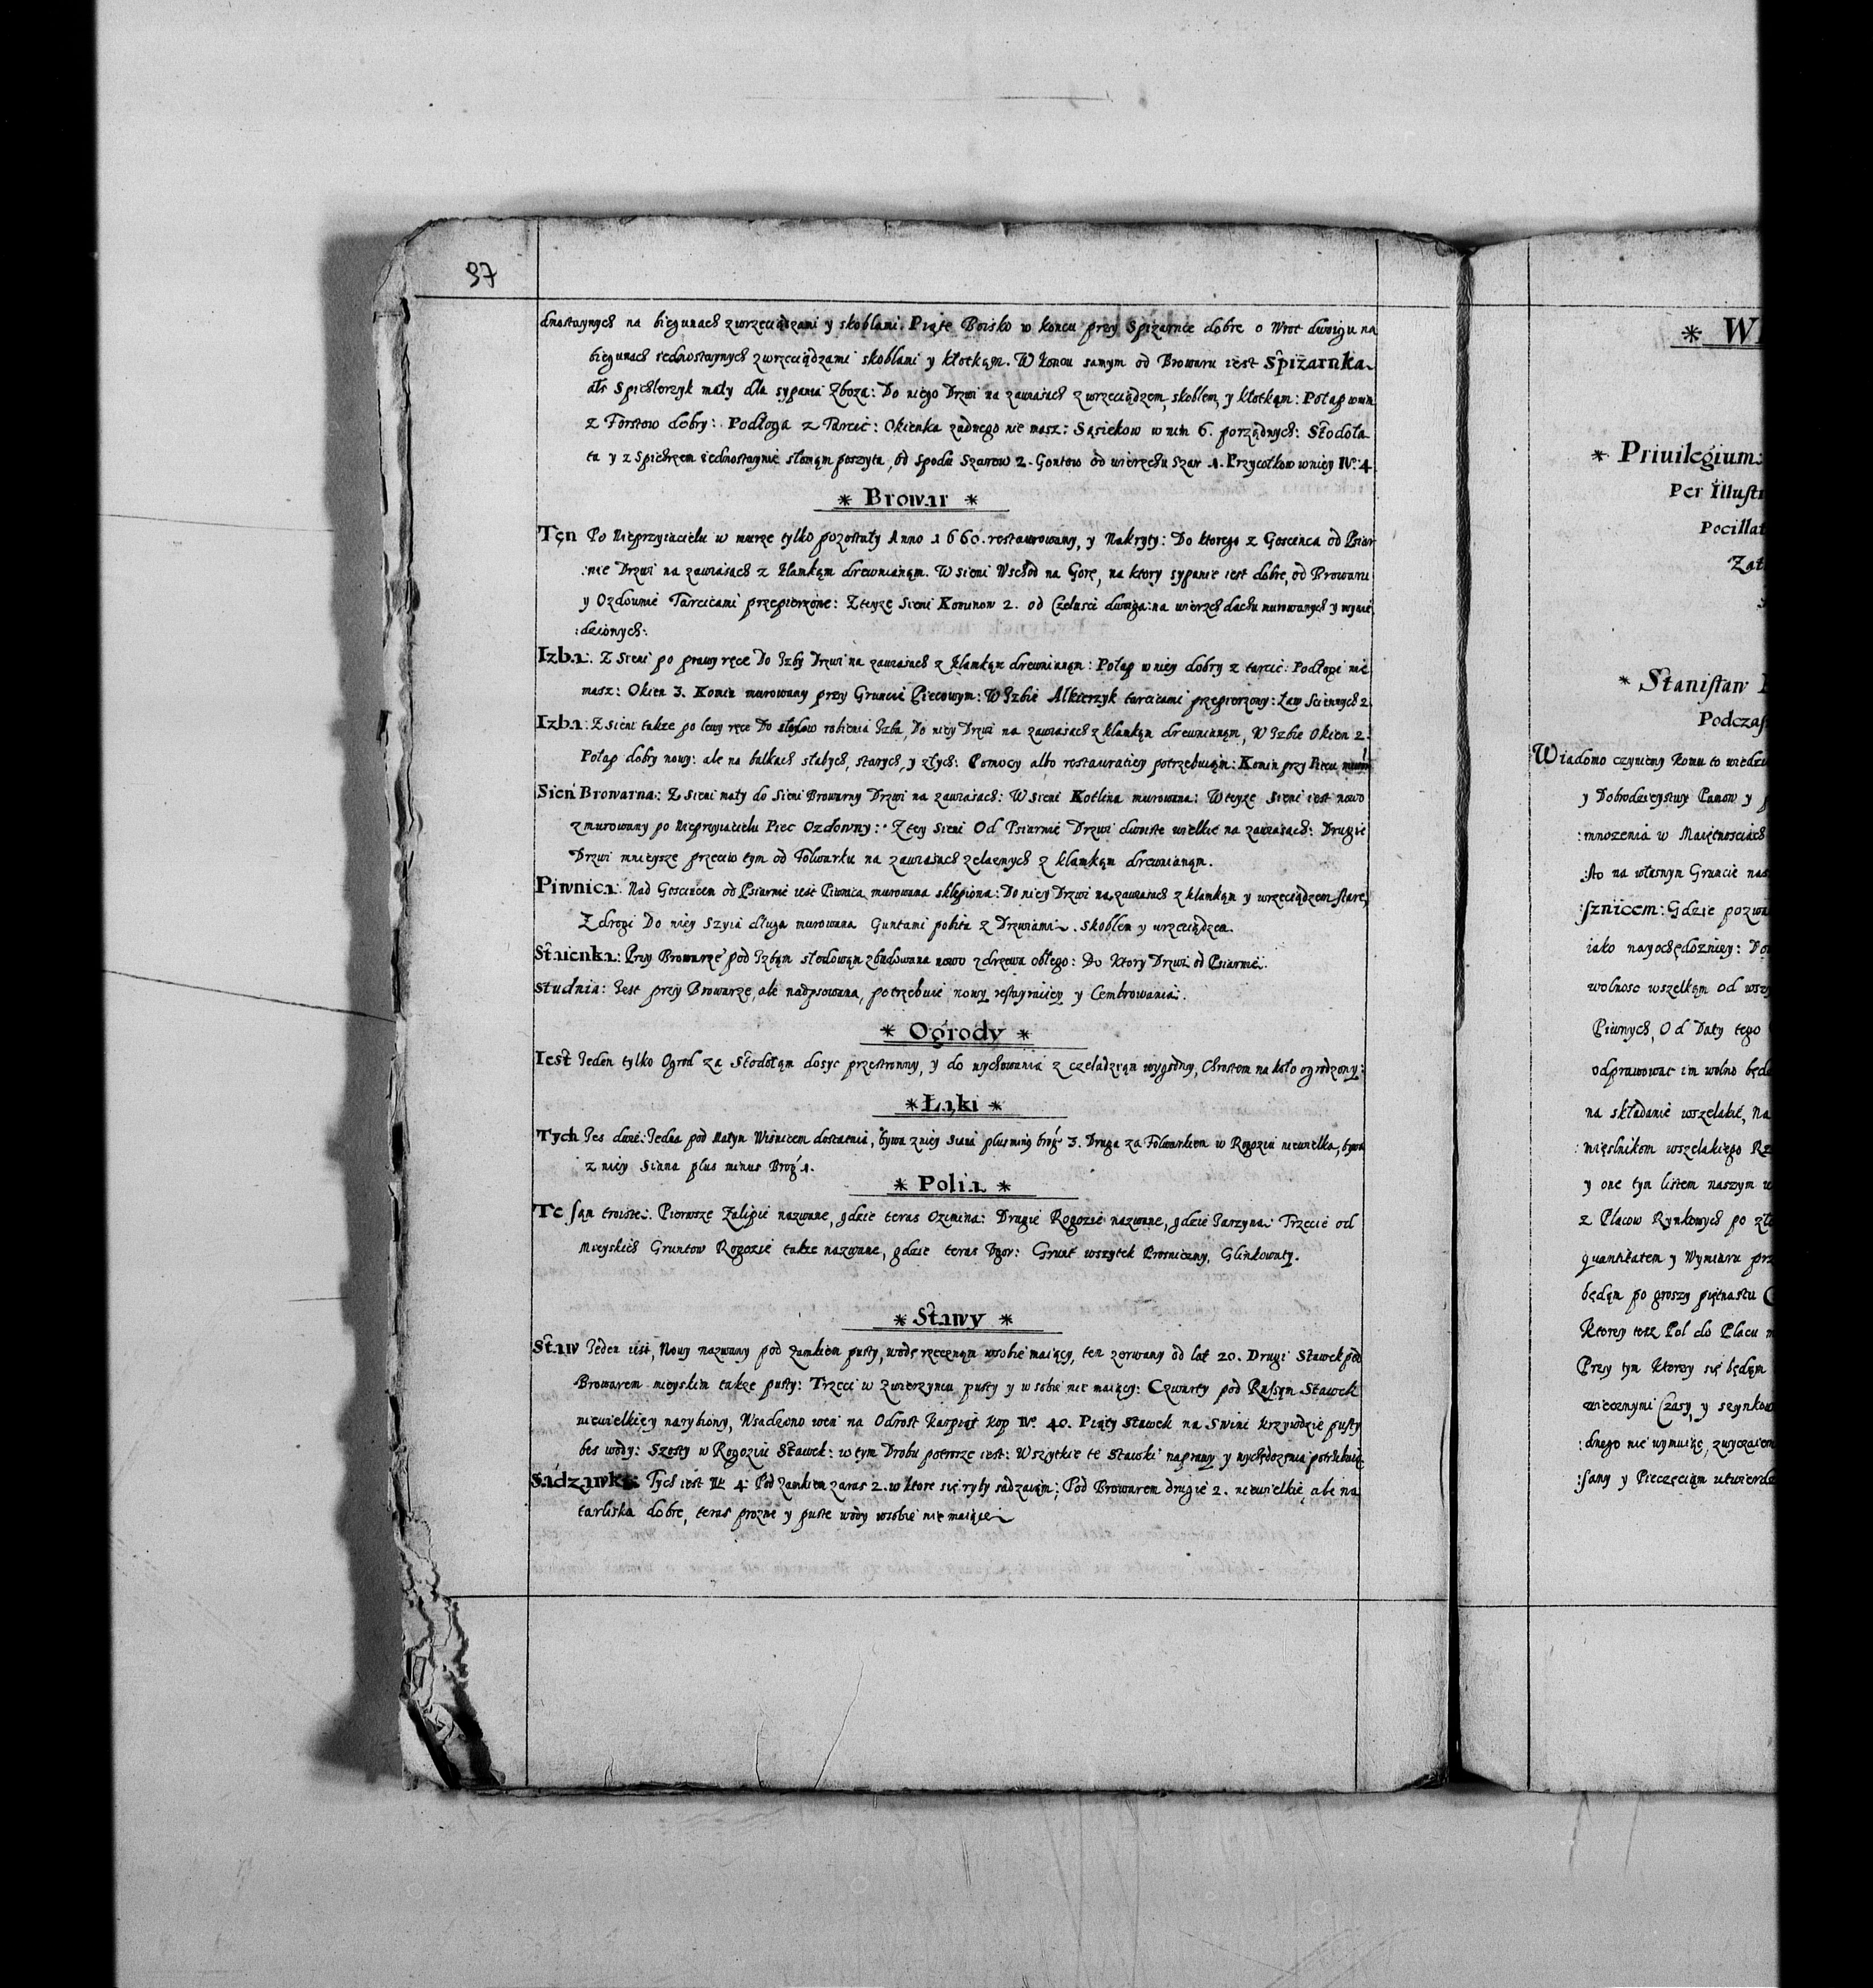 97
dnostaynych na biegunach z wrzeciądzami y skoblami. Piąte Boisko w koncu przy Spizarnce dobre o Wrot dwoigu na
biegunach iednostaynych z wrzeciądzami skoblami y kłotkąm. W koncu samym od Browaru iest Spiżarnka
als Spichlerzyk mały dla sypania Zboza: Do niego Drzwi na zawiasach z wrzeciądzem, skoblem, y kłotkąm: Potap w nim
z Forstow dobry: Podłoga z Tarcic: Okienka zadnego nie masz: Sąsiekow w nim 6. porządnych: Stodoła
ta y z Spichrzem iednostaynie słomąm poszyta, od spodu Szarow 2. Gontow od wierzchu Szar 1. Przyciołkow w niey No. 4
* Browar *
Ten Po Nieprzyiacielu w murze tylko pozostały Anno 1660. restaurowany, y Nakryty: Do ktorego z Goscinca od Psiar
:nie Drzwi na zawiasach z klamkąm drewnianąm. W sieni Wschod na Gorę, na ktory sypanie iest dobre, od Browaru
y Ozdownie Tarcicami przepierzone: Z teyze Sieni Kominow 2. od Czelusci dwoiga: na wierzch dachu murowanych y wywie
:dzionych:
Izba: Z Sieni po prawy ręce Do Izby Drzwi na zawiasach z klamkąm drewnianąm: Potap w niey dobry z tarcic: Podłogi nie
masz: Okien 3. Komin murowany przy Gruncie Piecowym: W Izbie Alkierzyk tarcicami przepierzony: Ław Sciennych 2.
Izba: Z Sieni takze po lewy ręce Do słodow robienia Izba, Do niey Drzwi na zawiasach z klamkąm drewnianąm, W Izbie Okien 2:
Potap dobry nowy: ale na balkach słabych, starych, y złych: Pomocy albo restauratiey potrzebuiąm: Komin przy Piecu
Sień Browarna: Z Sieni mały do Sieni Browarny Drzwi na zawiasach: W Sieni Kotlina murowana: W teyze Sieni iest nowo
zmurowany po Nieprzyiacielu Piec Ozdowny: Z tey Sieni Od Psiarnie Drzwi dwoiste wielkie na zawiasach: Drugie
Drzwi mnieysze przeciw tym od Folwarku na zawiasach zelaznych z klamkąm drewnianąm.
Piwnica: Nad Goscincem od Psiarnie iest Piwnica murowana sklepiona: Do niey Drzwi na zawiasach z klamkąm y wrzeciądzem stare,
Z drogi Do niey Szyia długa murowana Guntami pobita z Drzwiami, skoblem y wrzeciądzem.
Staienka: Przy Browarze pod Izbąm słodowąm zbudowana nowo z drzewa obłego: Do Ktory Drzwi od Psiarnie.
Studnia: Iest przy Browarze, ale nadpsowana, potrzebuie nowy y Cembrowania:.
* Ogrody *
Iest Ieden tylko Ogrod za Stodołąm dosyc przestronny, y do wychowania z czeladziąm wygodny, Chrostem na koło ogrodzony:
* Łąki *
Tych Ies dwie: Iedna pod Małym Wisnicem dostatnia, bywa z niey Siana plus minq brog: 3. Druga za Folwarkiem w Rogoziu niewielka, bywa
z niey Siana plus minus Brog 1.
* Polia *
Te sąm troiste: Pierwsze Zalipie nazwane, gdzie teras Ozimina: Drugie Rogozie nazwane, gdzie Iarzyna: Trzecie od
Mieyskich Gruntow Rogozie takze nazwane, gdzie teras Ugor: Grunt wszytek Glinkowaty.
* Stawy *
Staw Ieden iest, Nowy nazwany pod Zamkiem pusty, wodę rzecznąm w sobie maiący, ten zerwany od lat 20. Drugi Stawek pod
Browarem mieyskim takze pusty: Trzeci w Zwierzyncu pusty y w sobie nic maiący: Czwarty pod Stawek
niewielkiey narybiony, Wsadzono weń na Odrost Karpiąt kop No. 40. Piąty Stawek na Swini krzywdzie pusty
bes wody: Szosty w Rogoziu Stawek: w tym Drobu potrosze iest: Wszytkie te Stawki naprawy y wychędozenia potrzebuią
Sadzawka: Tych iest No. 4: Pod Zamkiem zaras 2. w ktore się ryby sadzaiąm; Pod Browarem drugie 2. niewielkie, ale na
tarliska dobre, teras prozne y puste wody w sobie nie maiące
* Wi
* Priuilegium:
Per Illust
Pocillat
Zat
* Stanisław
Podczas
Wiadomo czyniemy Komu to wiedzi
y Dobrodzieystwy Panow y
:mnozenia w Maiętnosciach
:sto na własnym Gruncie nas
:sznicem: Gdzie pozwa
iako nayochędozniey: Do
wolnosc wszelkąm od wszy
Piwnych, Od Daty tego
odprawowac im wolno będz
na składanie wszelakie, Na
:mięslnikom wszelakiego Rz
y one tym listem naszym
z Placow Rynkowych po zł
quantitatem y Wymiaru prz
będąm po groszy piętnastu
Ktorey tesz Pol do Placu
Przy tym Ktorzy się będąm
wiecznymi Czasy, y szynkow
:dnego nie wymuiąc, zwyczaiem
:sany y Pieczęciąm utwierdz